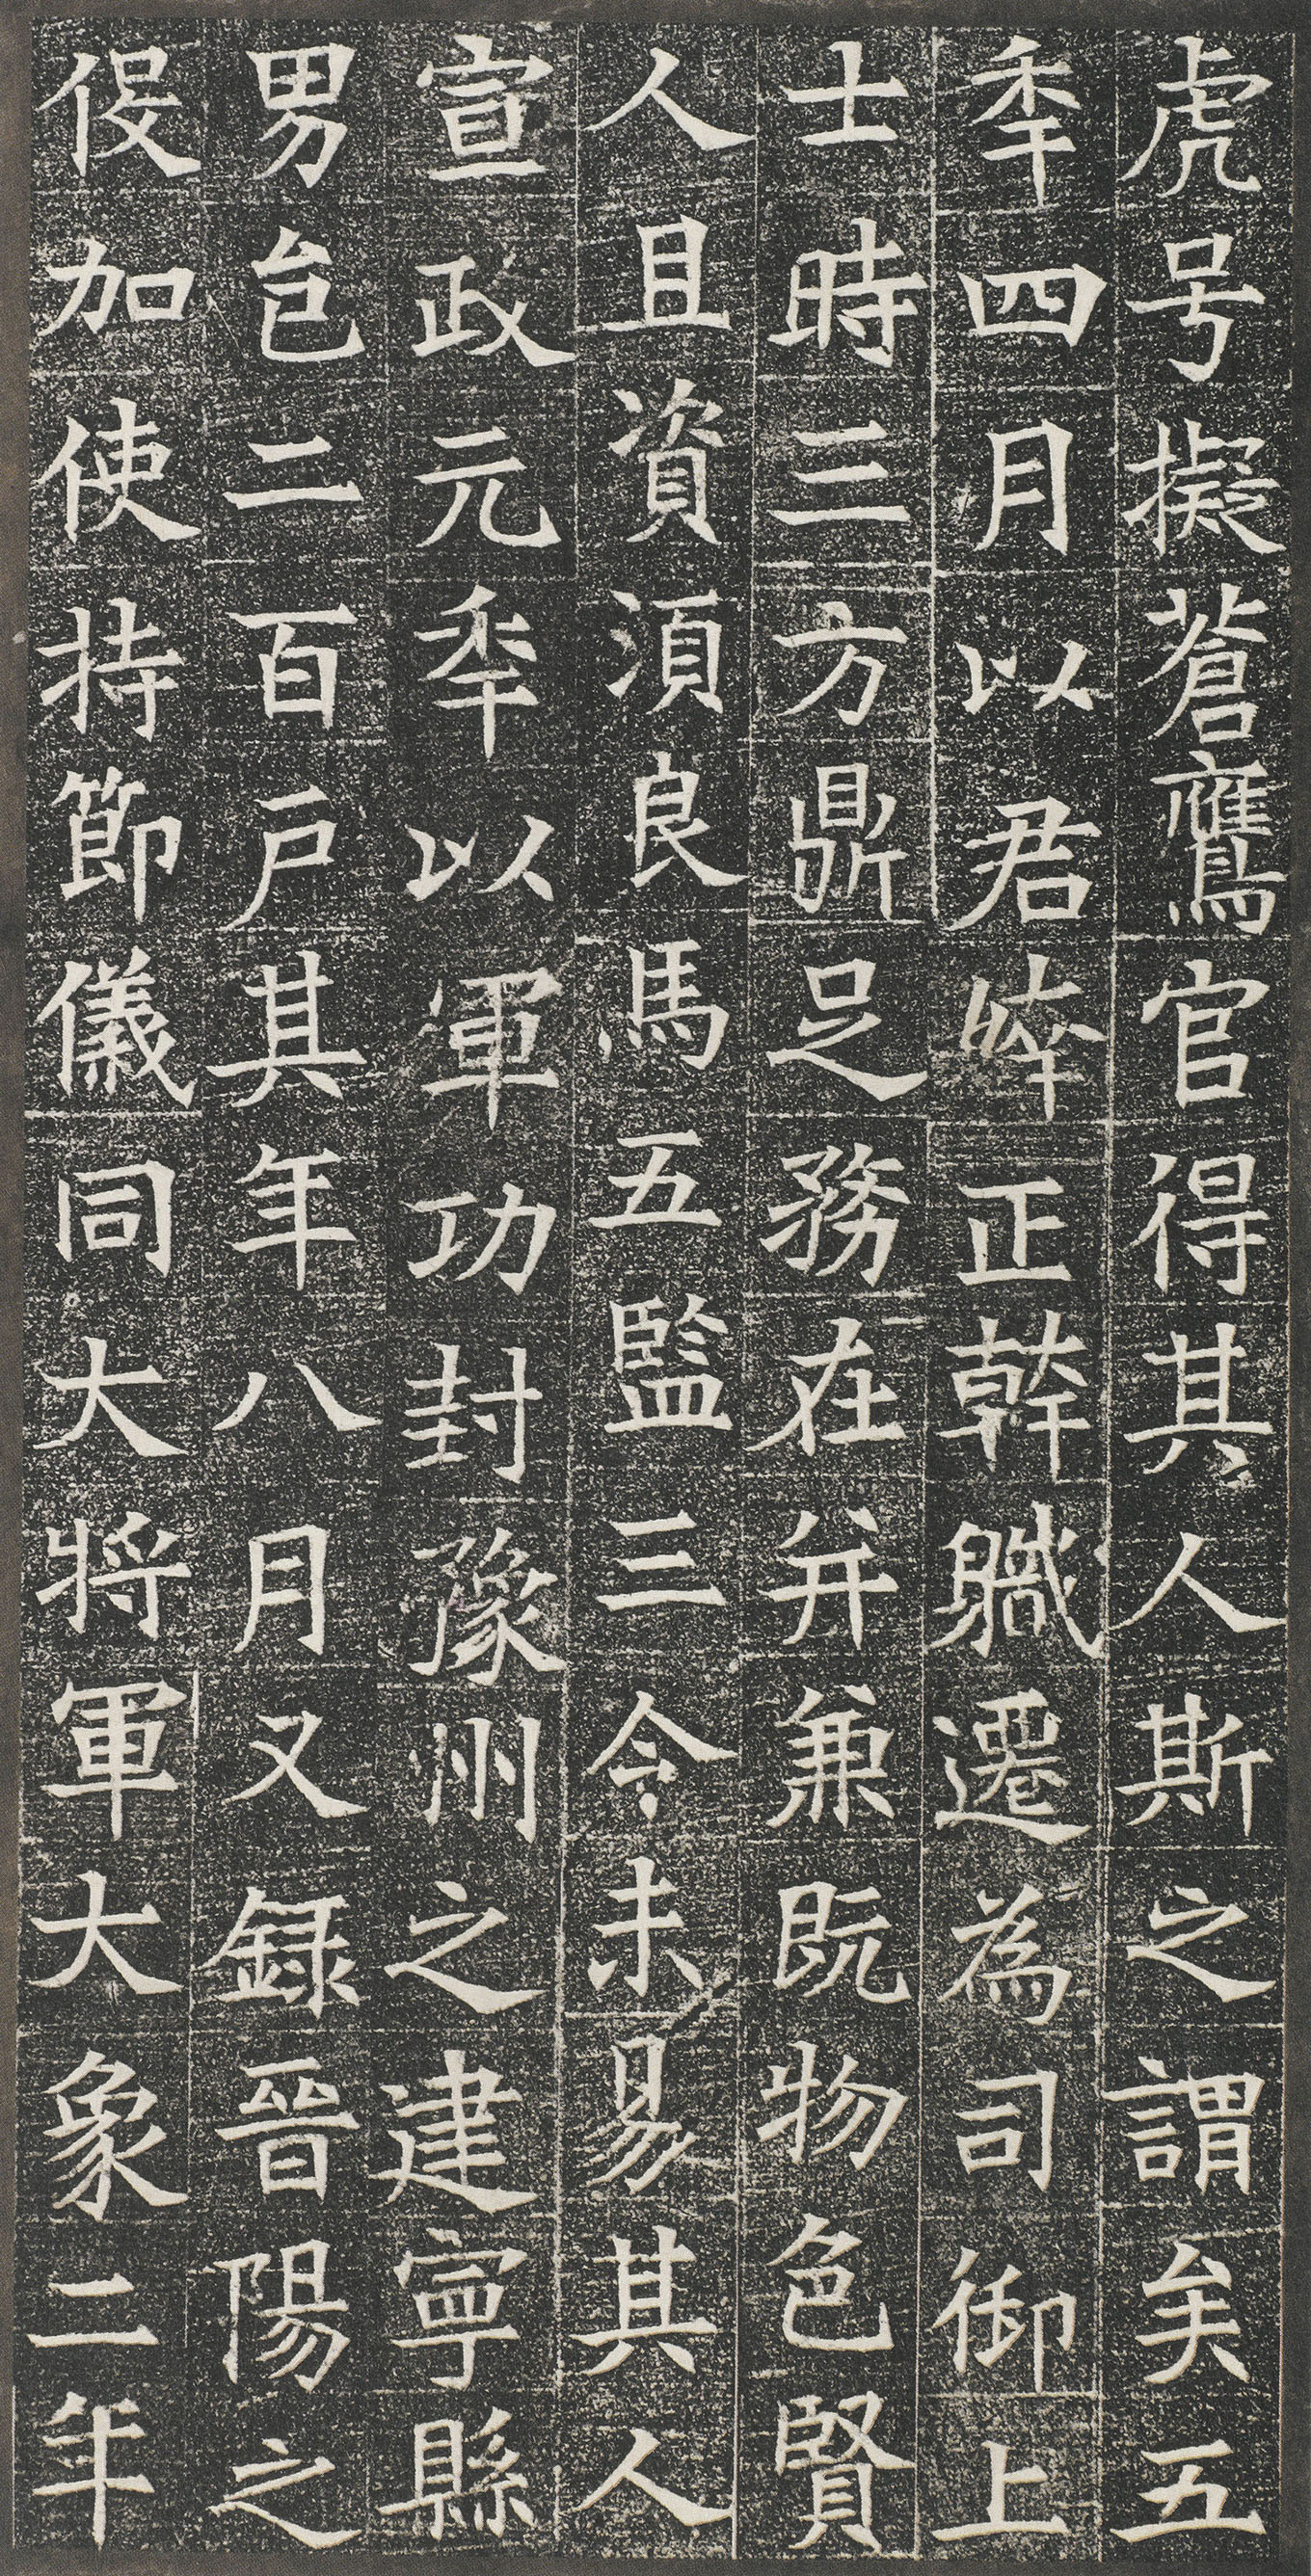 虎号擬蒼鷹官得其人斯之謂矣五
秊四月以君正幹軄遷為司御上
士時三方鼎足務在并兼既物色賢
人且資湏良馬五監三令未易其人
宣政元秊以軍功封豫州之建寧縣
男邑二百戶其年八月又録晉陽之
伇加使持節儀同大將軍大象二年